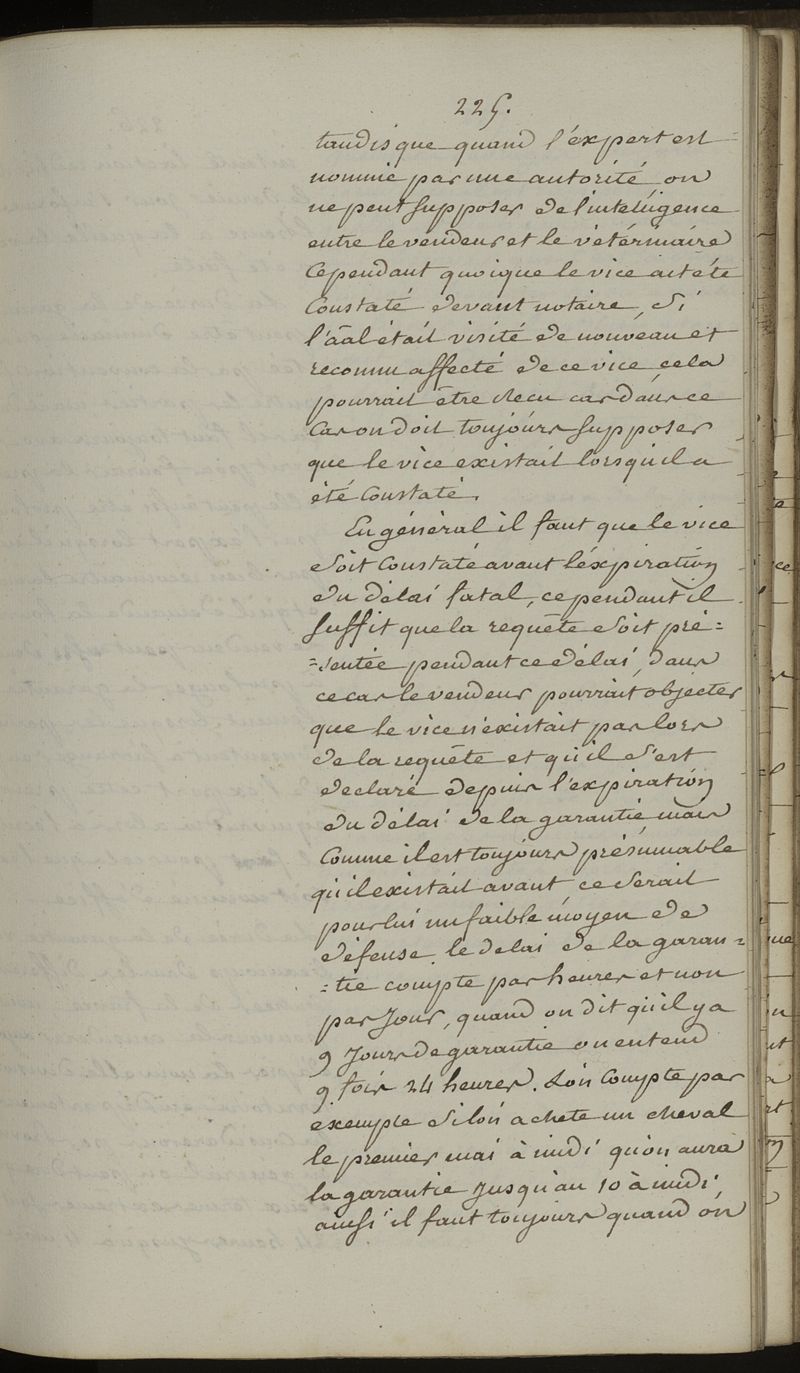 225.
tandisque quand l'éxpert est
nommé par une autorité on
ne peut supposer de l'intelligence
entre le vendeur et le vétérinaire
Cependant quoique le vice ait été
Constaté devant notaire, Si
l'aãl était visité de nouveau et
reconnu affecté de ce vice cela
pourrait être recu car dans ce
Cas on doit toujours supposer
que le vice existait lorsqu'il a
été Constaté.
En général il faut que le vice
soit Constaté avant l'éxpiration
du délai fatal, cependant il
suffit que la requête soit pré=
=sentée pendant ce délai, dans
ce cas le vendeur pourrait objecter
que le vice n'existait pas lors
de la requête et qu'il s'est
declaré depuis l'expiration
du délai de la garantie mais
Comme il est toujours présumable
qu'il existait avant ce serait
pour lui un faible moyen de
défense. le delai de la garan=
=tie compte par heures et non
par Jour, quand on dit qu'il y a
9 Jours de garantie on entend
9 fois 24 heures. L'on Compte par
exemple Si l'on achete un cheval
le premier mai à midi qu'on aura
la garantie Jusqu'au 10 à midi,
ainsi il faut toujours quand on